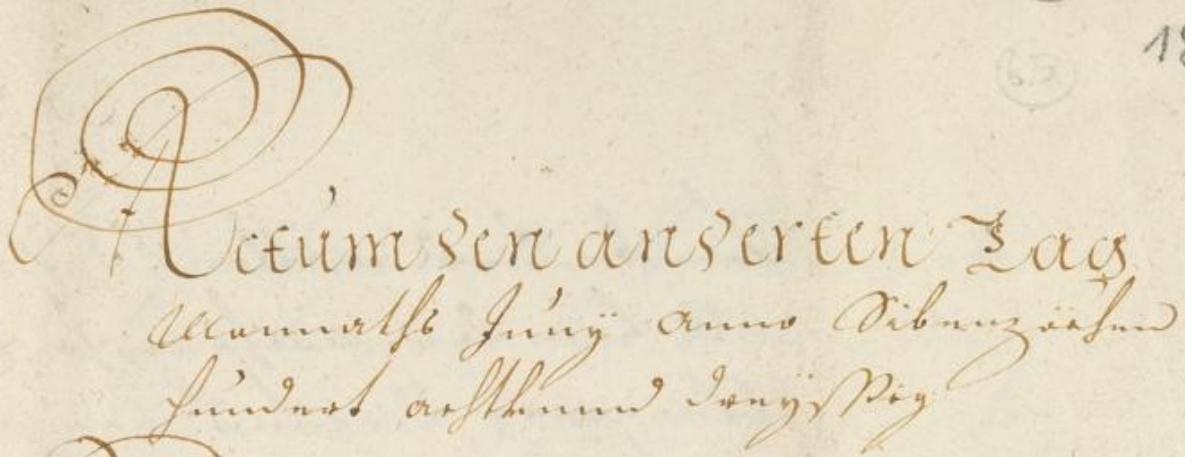 18
63
Actum den anderten Tag
Monnaths Juny anno Sibenzöehen
hundert acht unnd dreyssig